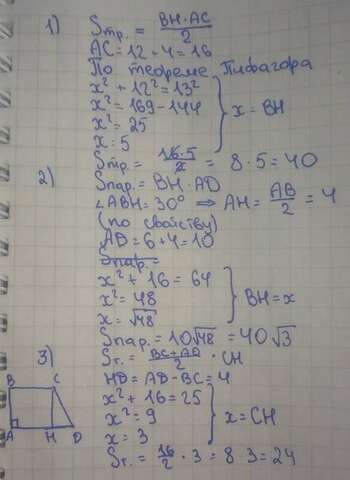 1) Sтр. = BH·AC/2
AC = 12 + 4 = 16
По теореме Пифагора
x² + 12² = 13²
x² = 169 - 144
x² = 25
x = 5
x = BH
Sтр. = 16·5/2 = 8·5 = 40
2) Sпар. = BH·AD
∠ABH = 30° ⇒ AH = AB/2 = 4
(по свойству)
AD = 6 + 4 = 10
Sпар. =
x² + 16 = 64
x² = 48
x = √48
BH = x
Sпар. = 10√48 = 40√3
3) Sт. = BC+AD/2 · CH
HD = AD - BC = 4
x² + 16 = 25
x² = 9
x = 3
x = CH
Sт. = 16/2 · 3 = 8·3 = 24
B C
A H D